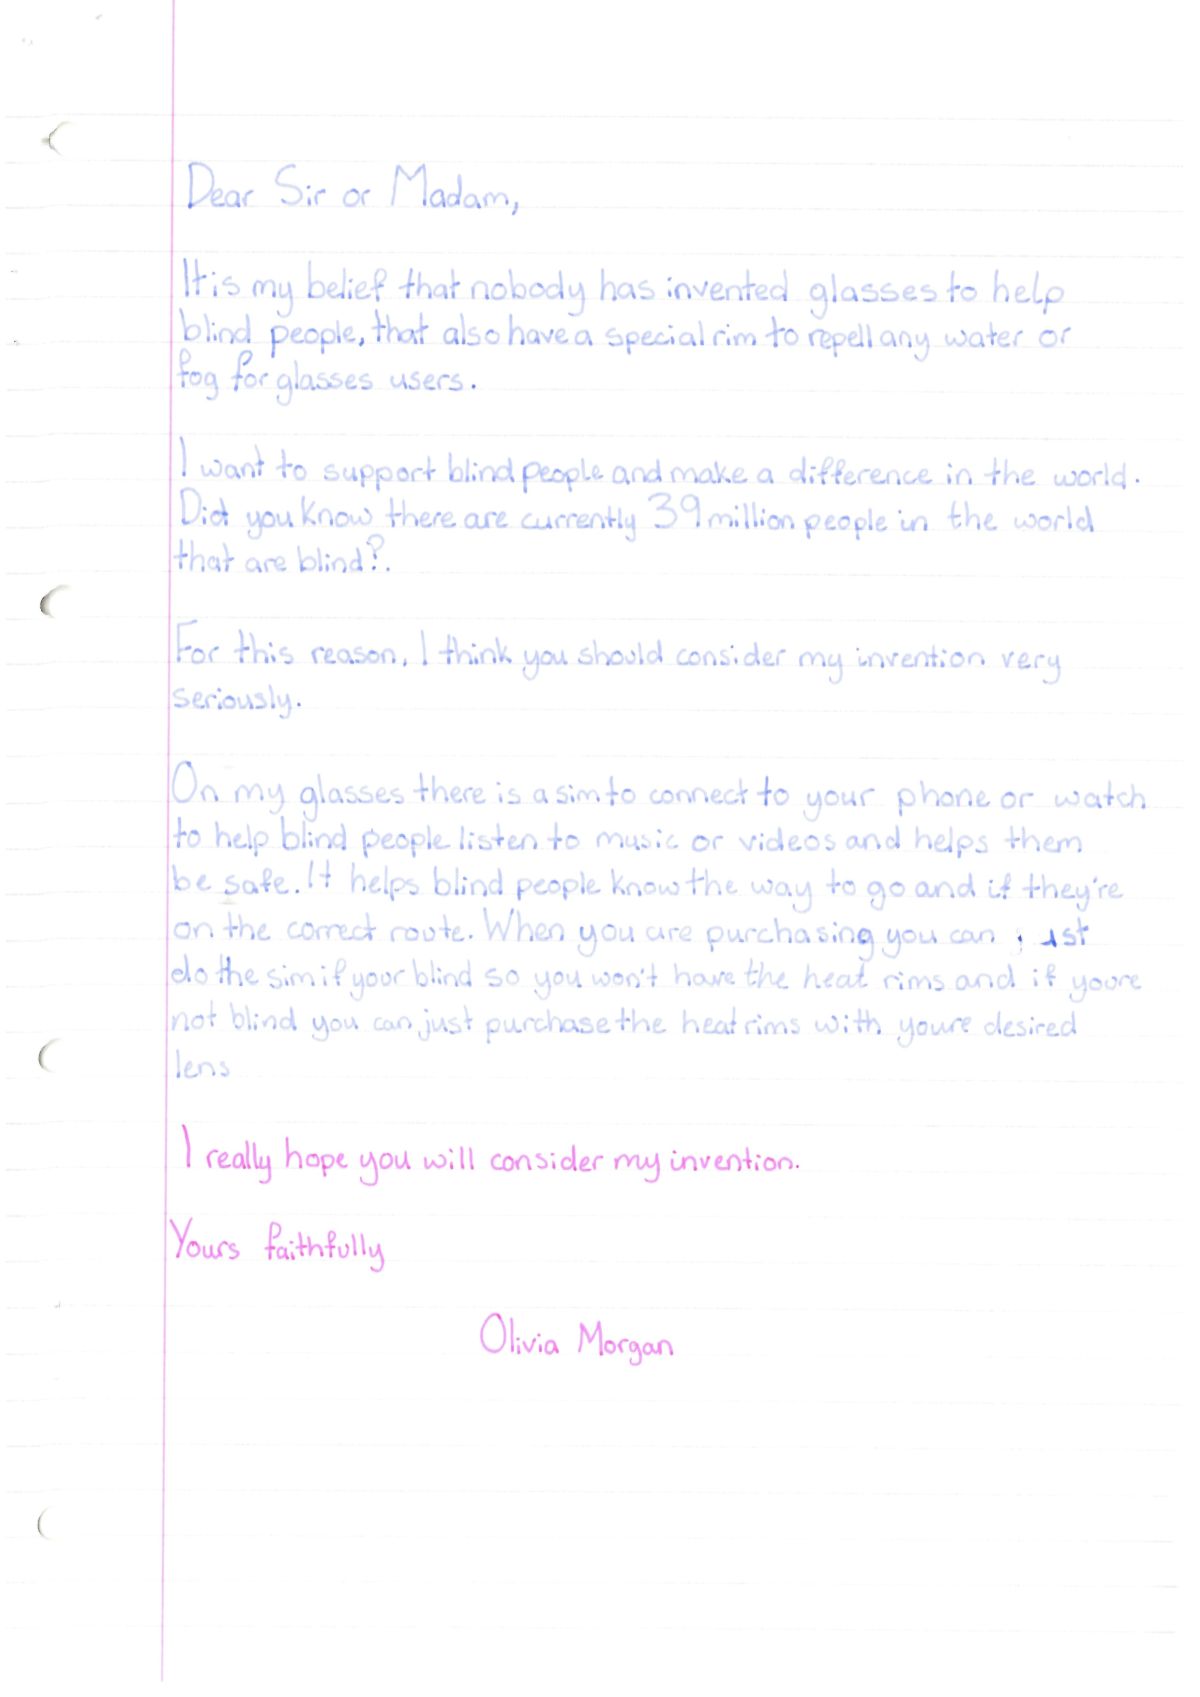 Dear Sir or Madam,
It is my belief that nobody has invented glasses to help
blind people, that also have a special rim to repell any water or
fog for glasses users.
I want to support blind people and make a difference in the world.
Did you know there are currently 39 million people in the world
that are blind?.
For this reason, I think you should consider my invention very
seriously.
On my glasses there is a sim to connect to your phone or watch
to help blind people listen to music or videos and helps them
be safe. It helps blind people know the way to go and if they're
on the correct route. When you are purchasing you can just
do the sim if your blind so you won't have the heat rims and if youre
not blind you can just purchase the heat rims with youre desired
lens
I really hope you will consider my invention.
Yours faithfully
Olivia Morgan